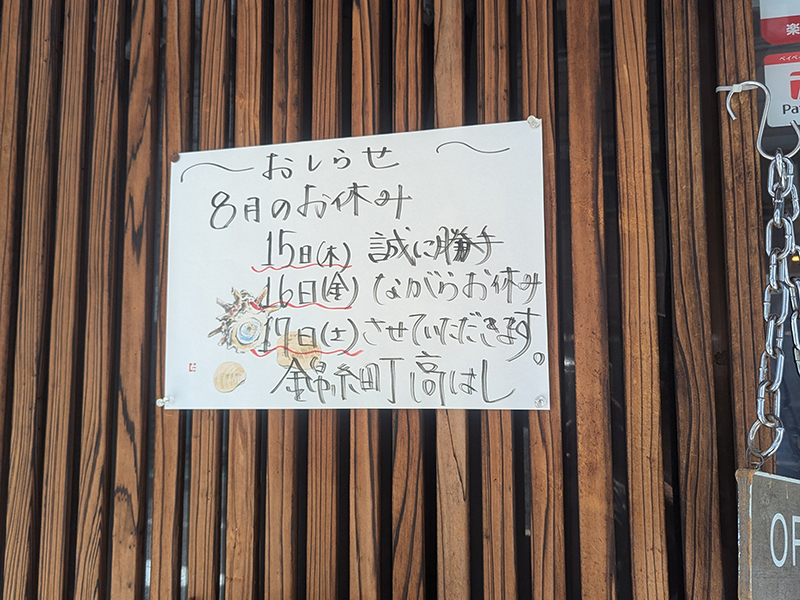 おしらせ
8月のお休み
15日(木) 誠に勝手
16日(金) ながらお休み
17日(土) させていただきます。
錦糸町 高はし
楽
ペイペ
Pa
OP